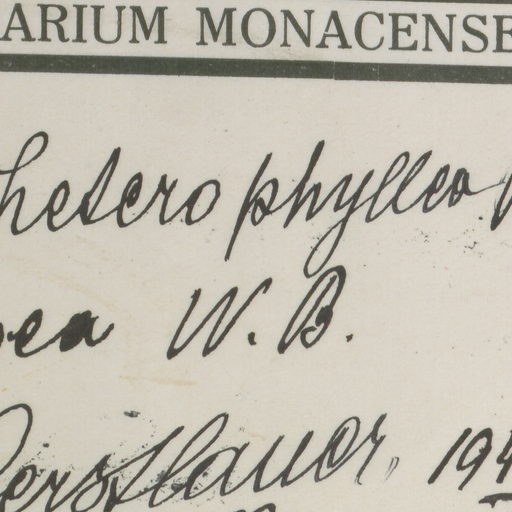 ARIUM MONACENSE
heterophyllea
ea W. B.
Gerstlauer, 194